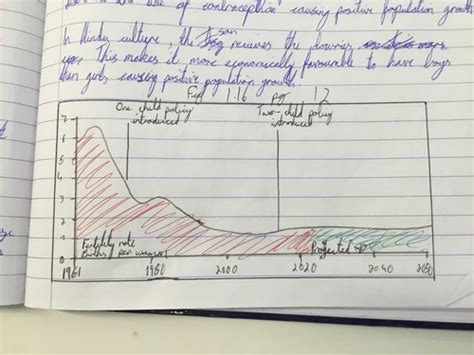 use of contraception causing positive population growth
In Hindu culture, the son receives the dowries
This makes it more economically favourable to have boys
than girls, causing positive population growth.
Fig 1.16 pg 12
One child policy introduced
Two-child policy introduced
7
6
5
4
3
2
1
0
Fertility rate
Births per woman
Projected →
1961 1980 2000 2020 2040 2050